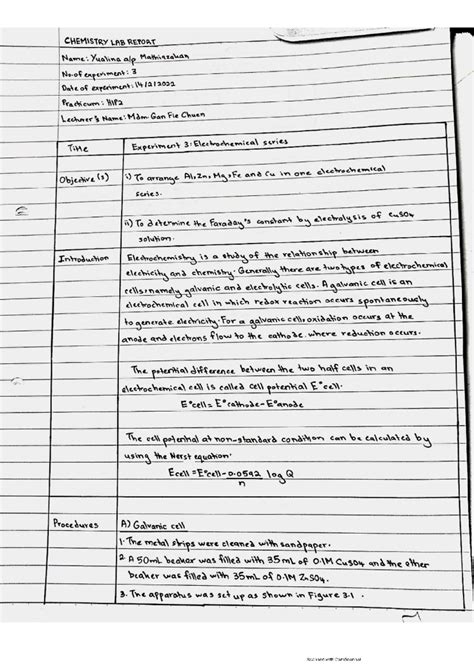 CHEMISTRY LAB REPORT
Name: Yualina a/p Mathiazakan
No. of experiment: 3
Date of experiment: 14/2/2022
Practicum: H1P2
Lecturer's Name: Mdm. Gan Fie Chuen
Title
Experiment 3: Electrochemical series
Objective(s)
i) To arrange Al, Zn, Mg, Fe and Cu in one electrochemical
series.
ii) To determine the Faraday's constant by electrolysis of CuSO4
solution.
Introduction
Electrochemistry is a study of the relationship between
electricity and chemistry. Generally there are two types of electrochemical
cells, namely galvanic and electrolytic cells. A galvanic cell is an
electrochemical cell in which redox reaction occurs spontaneously
to generate electricity. For a galvanic cell, oxidation occurs at the
anode and electrons flow to the cathode, where reduction occurs.
The potential difference between the two half cells in an
electrochemical cell is called cell potential E°cell.
E°cell = E°cathode - E°anode
The cell potential at non-standard condition can be calculated by
using the Nerst equation:
Ecell = E°cell - 0.0592 log Q
n
Procedures
A) Galvanic cell
1. The metal strips were cleaned with sandpaper.
2. A 50mL beaker was filled with 35 mL of 0.1M CuSO4 and the other
beaker was filled with 35mL of 0.1M ZnSO4.
3. The apparatus was set up as shown in Figure 3.1.